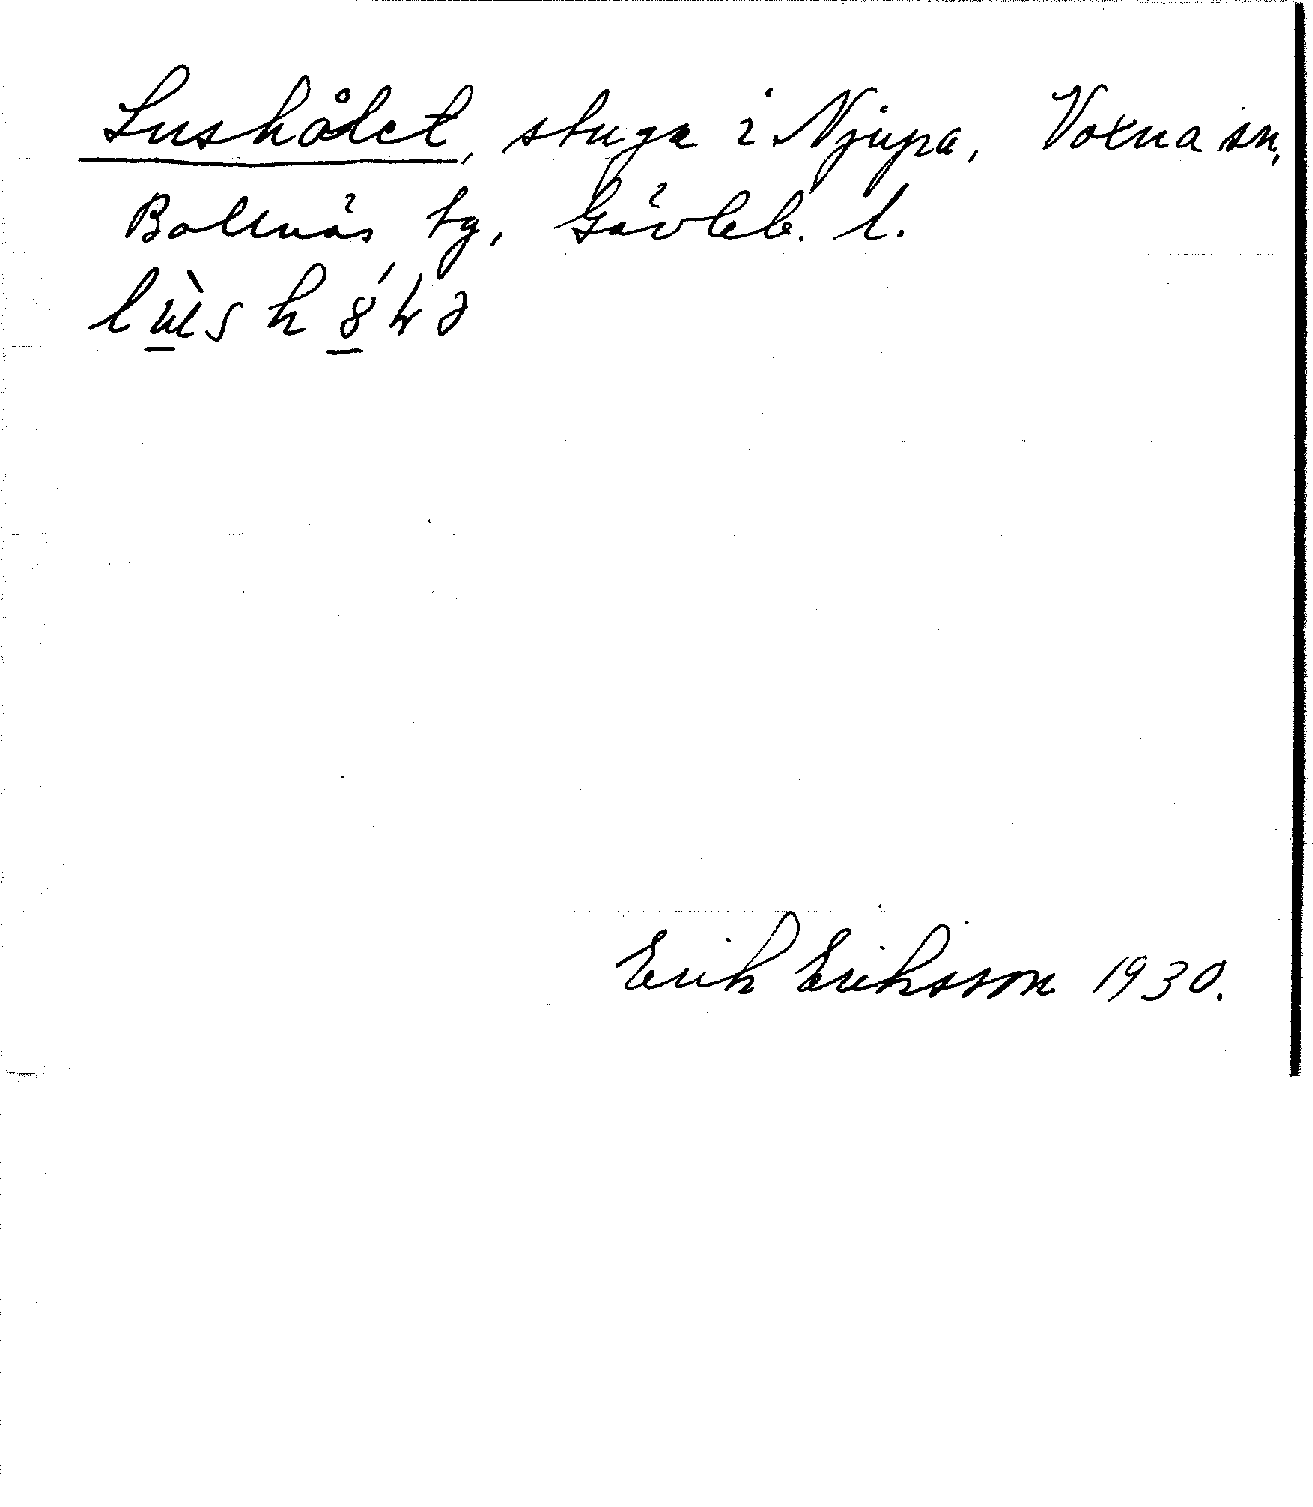 Lushålet, stuga i Njupa, Voxna sn,
Bollnäs tg, Gävleb. l.
Erik Eriksson 1930.